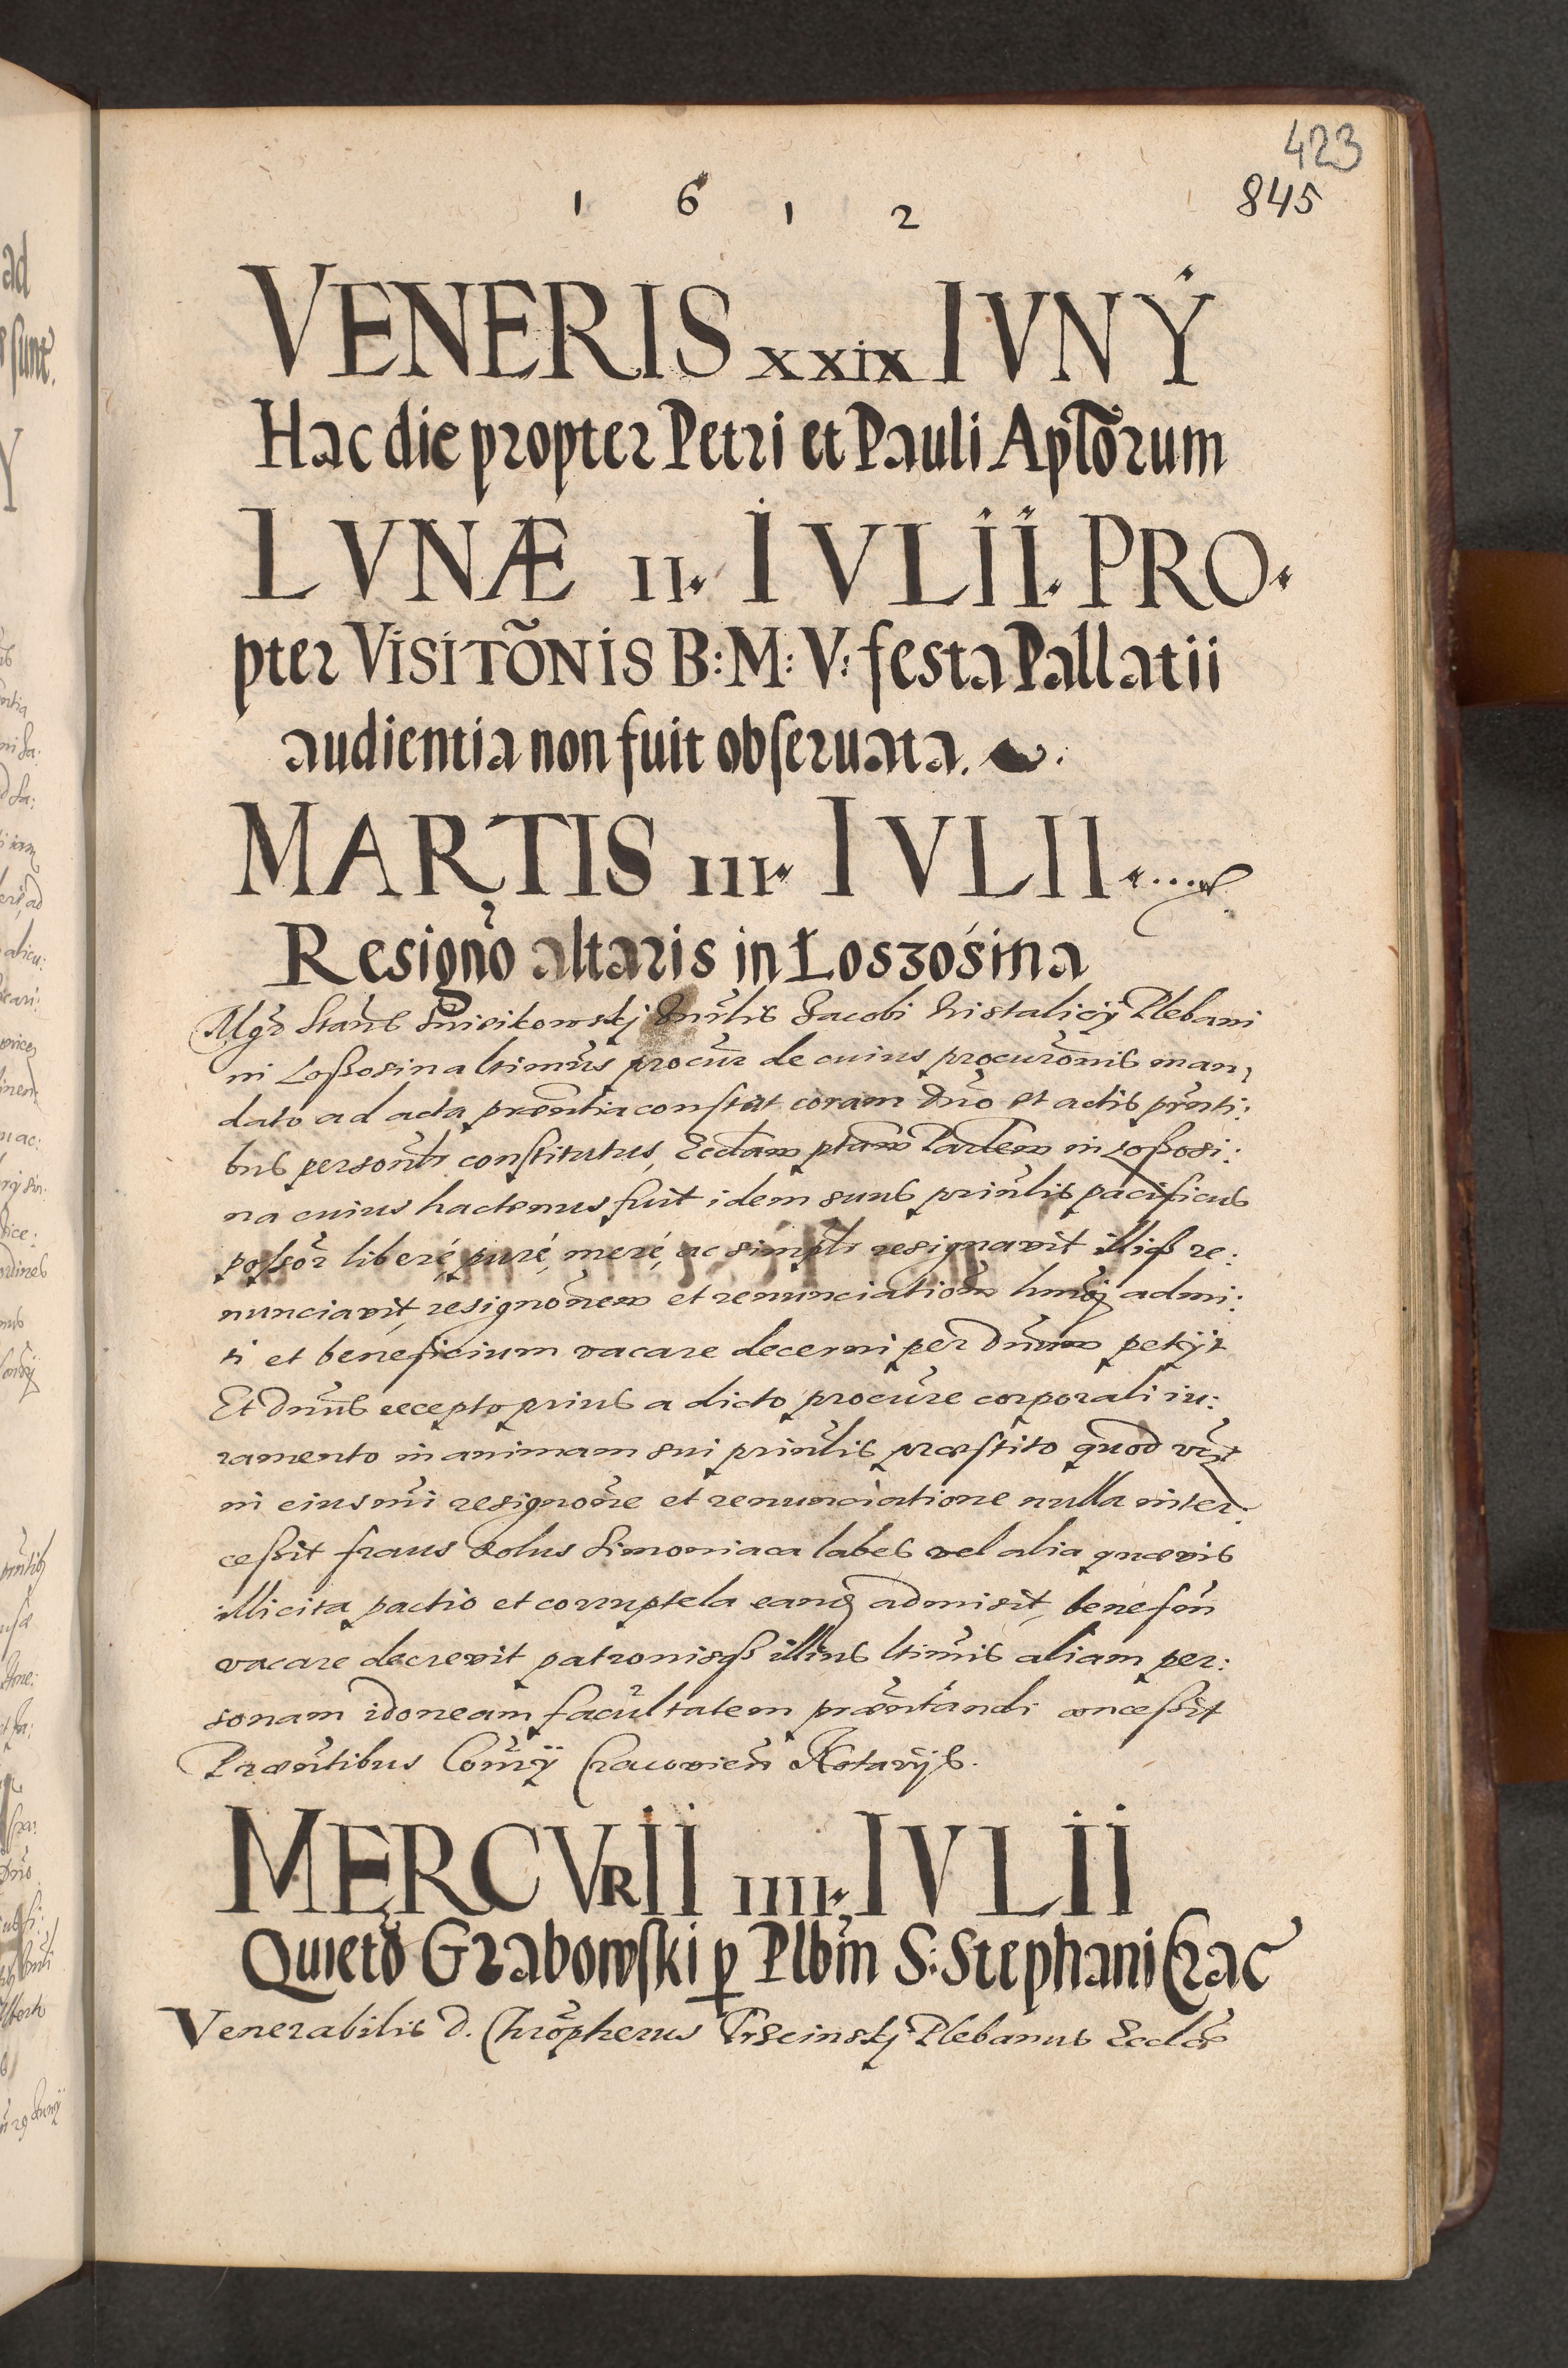 423
845
1 6 1 2
VENERIS xxix IVNŸ
Hac die propter Petri et Pauli Aptõrum
LVNÆ II. IVLII. PRO
pter VISITÕNIS B: M: V: festa Pallatii
audientia non fuit obseruata.
MARTIS III. IVLII
Resigno altaris in Loszosina
Mgr Stanis Jacobi Plebani
in Loßosina ltimus procur de cuius procuronis man,
dato ad acta præntia constat coram Dno et actis prnti:
bus personlr constitutus, Ecclam ptam in Loßosi:
na cuius hactenus fuit idem suus prinlis pacificus
possor liberé, puré, meré, ac simplr resignavit illisq re:
nunciavit, resignonem et renunciationem hmoi admi:
ti et beneficium vacare decerni per Dnum petijt
Et Dnus recepto prius a dicto procure corporali iu:
ramento in animam sui prinlis præstito quod
in eiusmi resignone et renunciatione nulla inter:
ceßit fraus dolus Simoniaca labes vel alia quævis
illicita pactio et corruptela eanq admisit, benefin
vacare decrevit patronisqß illius ltimis aliam per:
sonam idoneam facultatem præntandi conceßit
Præntibus Cracovien Notarijs.
MERCVRII IIII. IVLII
Quieto Grabowski p Plbm S: Stephani Crac
Venerabilis D. Chropherus Trzcinskj Plebanus Ecclæ